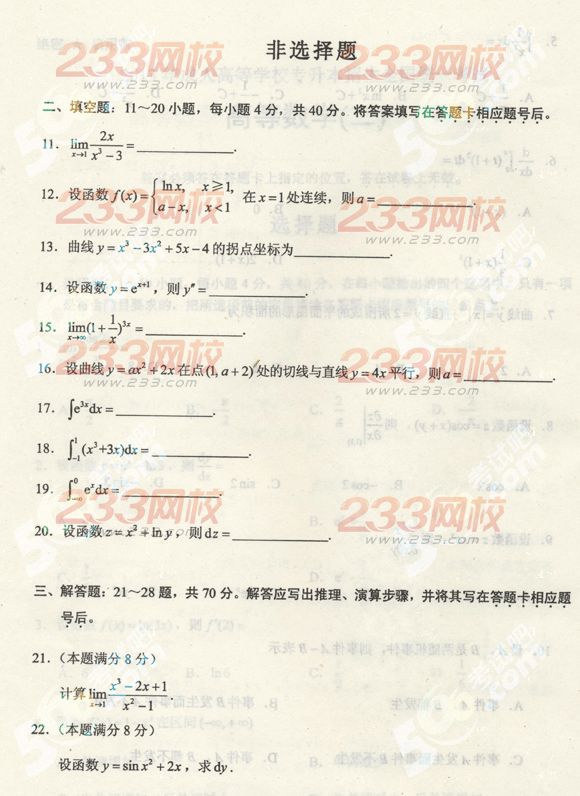 非选择题
二、填空题：11～20小题，每小题4分，共40分。将答案填写在答题卡相应题号后。
11. lim x→1 2x/(x³−3) = ________.
12. 设函数 f(x)={ln x, x≥1, a−x, x<1 在 x=1 处连续，则 a=________.
13. 曲线 y=x³−3x²+5x−4 的拐点坐标为________.
14. 设函数 y=e^(x+1)，则 y″=________.
15. lim x→∞ (1+1/x)^(3x) = ________.
16. 设曲线 y=ax²+2x 在点(1, a+2)处的切线与直线 y=4x 平行，则 a=________.
17. ∫e^(3x)dx=________.
18. ∫_(-1)^1 (x³+3x)dx=________.
19. ∫_(-∞)^0 e^x dx=________.
20. 设函数 z=x²+ln y，则 dz=________.
三、解答题：21～28题，共70分。解答应写出推理、演算步骤，并将其写在答题卡相应题
号后。
21.（本题满分8分）
计算 lim x→1 (x³−2x+1)/(x²−1).
22.（本题满分8分）
设函数 y=sin x²+2x，求 dy.
233网校
www.233.com